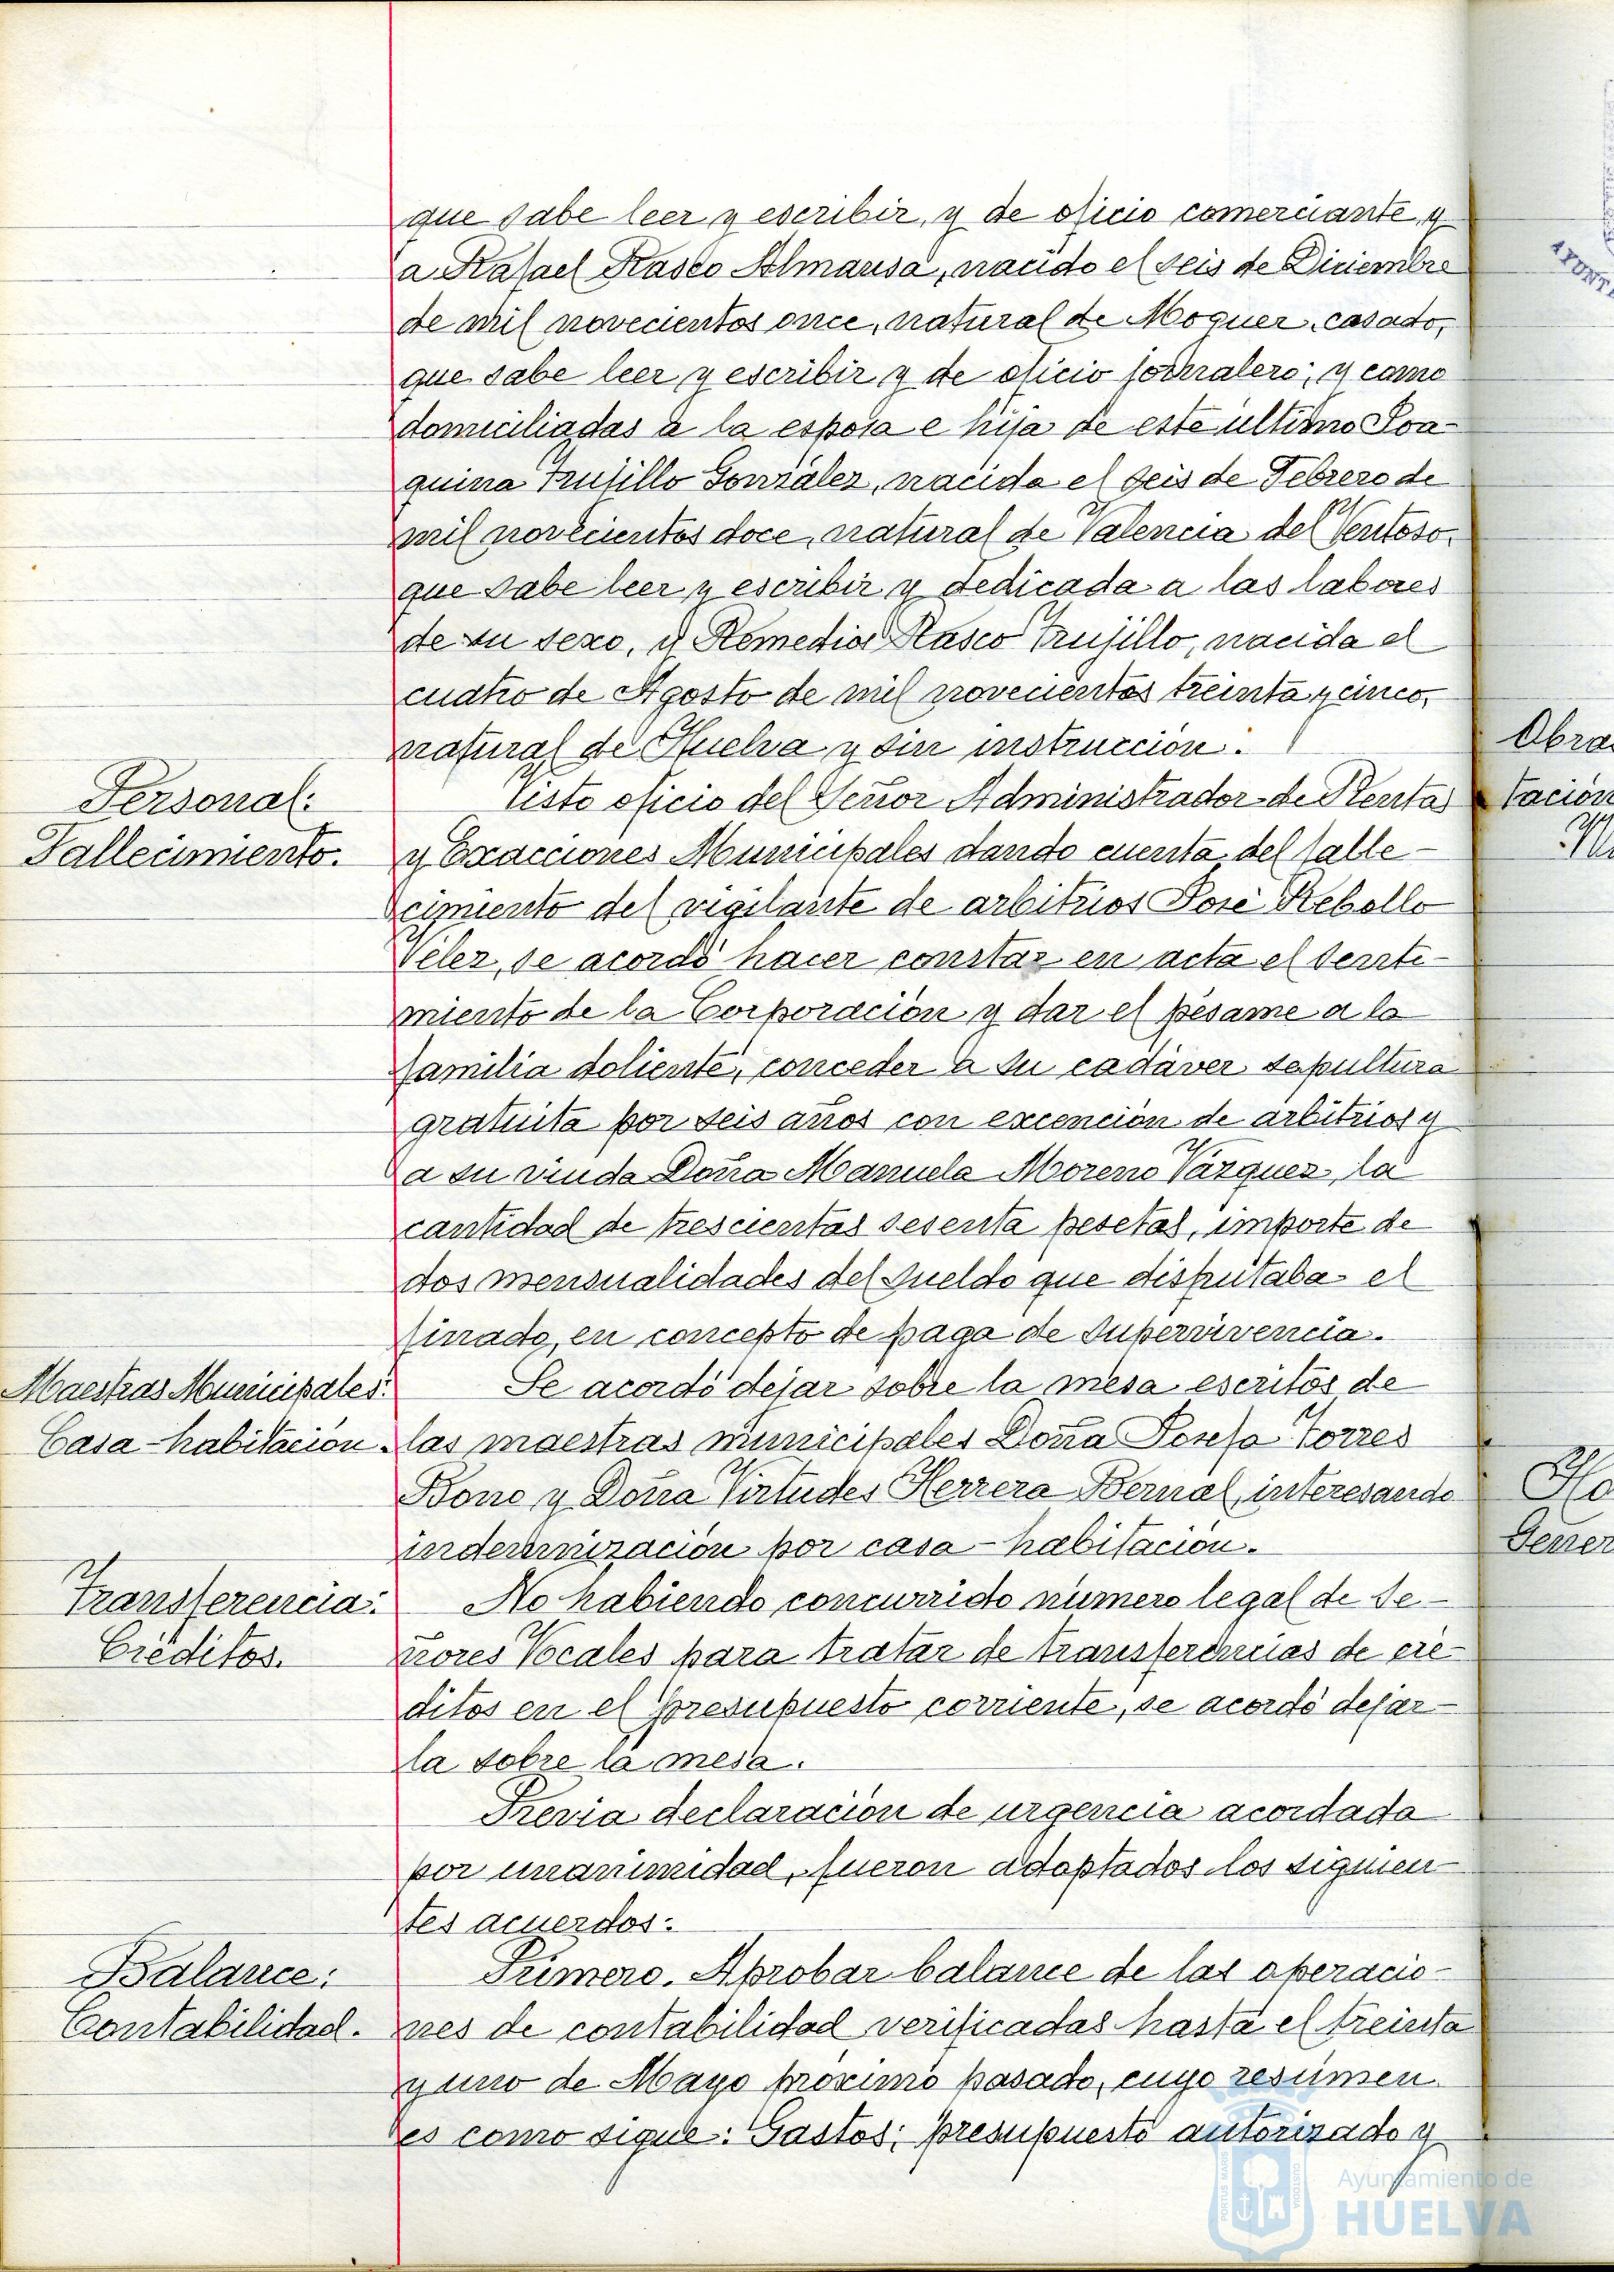 que sabe leer y escribir, y de oficio comerciante, y
a Rafael Rasco Almansa, nacido el seis de Diciembre
de mil novecientos once, natural de Moguer, casado,
que sabe leer y escribir y de oficio jornalero; y como
domiciliadas a la esposa e hija de este último Joa-
quina Trujillo González, nacida el seis de Febrero de
mil novecientos doce, natural de Valencia del Ventoso,
que sabe leer y escribir y dedicada a las labores
de su sexo, y Remedios Rasco Trujillo, nacida el
cuatro de Agosto de mil novecientos treinta y cinco,
natural de Huelva y sin instrucción.
Personal:
Fallecimiento.
Visto oficio del Señor Administrador de Rentas
y Exacciones Municipales dando cuenta del falle-
cimiento del vigilante de arbitrios José Rebollo
Vélez, se acordó hacer constar en acta el senti-
miento de la Corporación y dar el pésame a la
familia doliente, conceder a su cadáver sepultura
gratuita por seis años con excención de arbitrios y
a su viuda Doña Manuela Moreno Vázquez, la
cantidad de trescientas sesenta pesetas, importe de
dos mensualidades del sueldo que disfrutaba el
finado, en concepto de paga de supervivencia.
Maestras Municipales:
Casa-habitación.
Se acordó dejar sobre la mesa escritos de
las maestras municipales Doña Josefa Torres
Bono y Doña Virtudes Herrera Bernal, interesando
indemnización por casa-habitación.
Transferencia:
Créditos.
No habiendo concurrido número legal de Se-
ñores Vocales para tratar de transferencias de cré-
ditos en el presupuesto corriente, se acordó dejar-
la sobre la mesa.
Previa declaración de urgencia acordada
por unanimidad, fueron adoptados los siguien-
tes acuerdos:
Balance:
Contabilidad.
Primero. Aprobar balance de las operacio-
nes de contabilidad verificadas hasta el treinta
y uno de Mayo próximo pasado, cuyo resúmen
es como sigue: Gastos; presupuesto autorizado y
Obra
tación
Ho
Gener
AYUNT
Ayuntamiento de
HUELVA